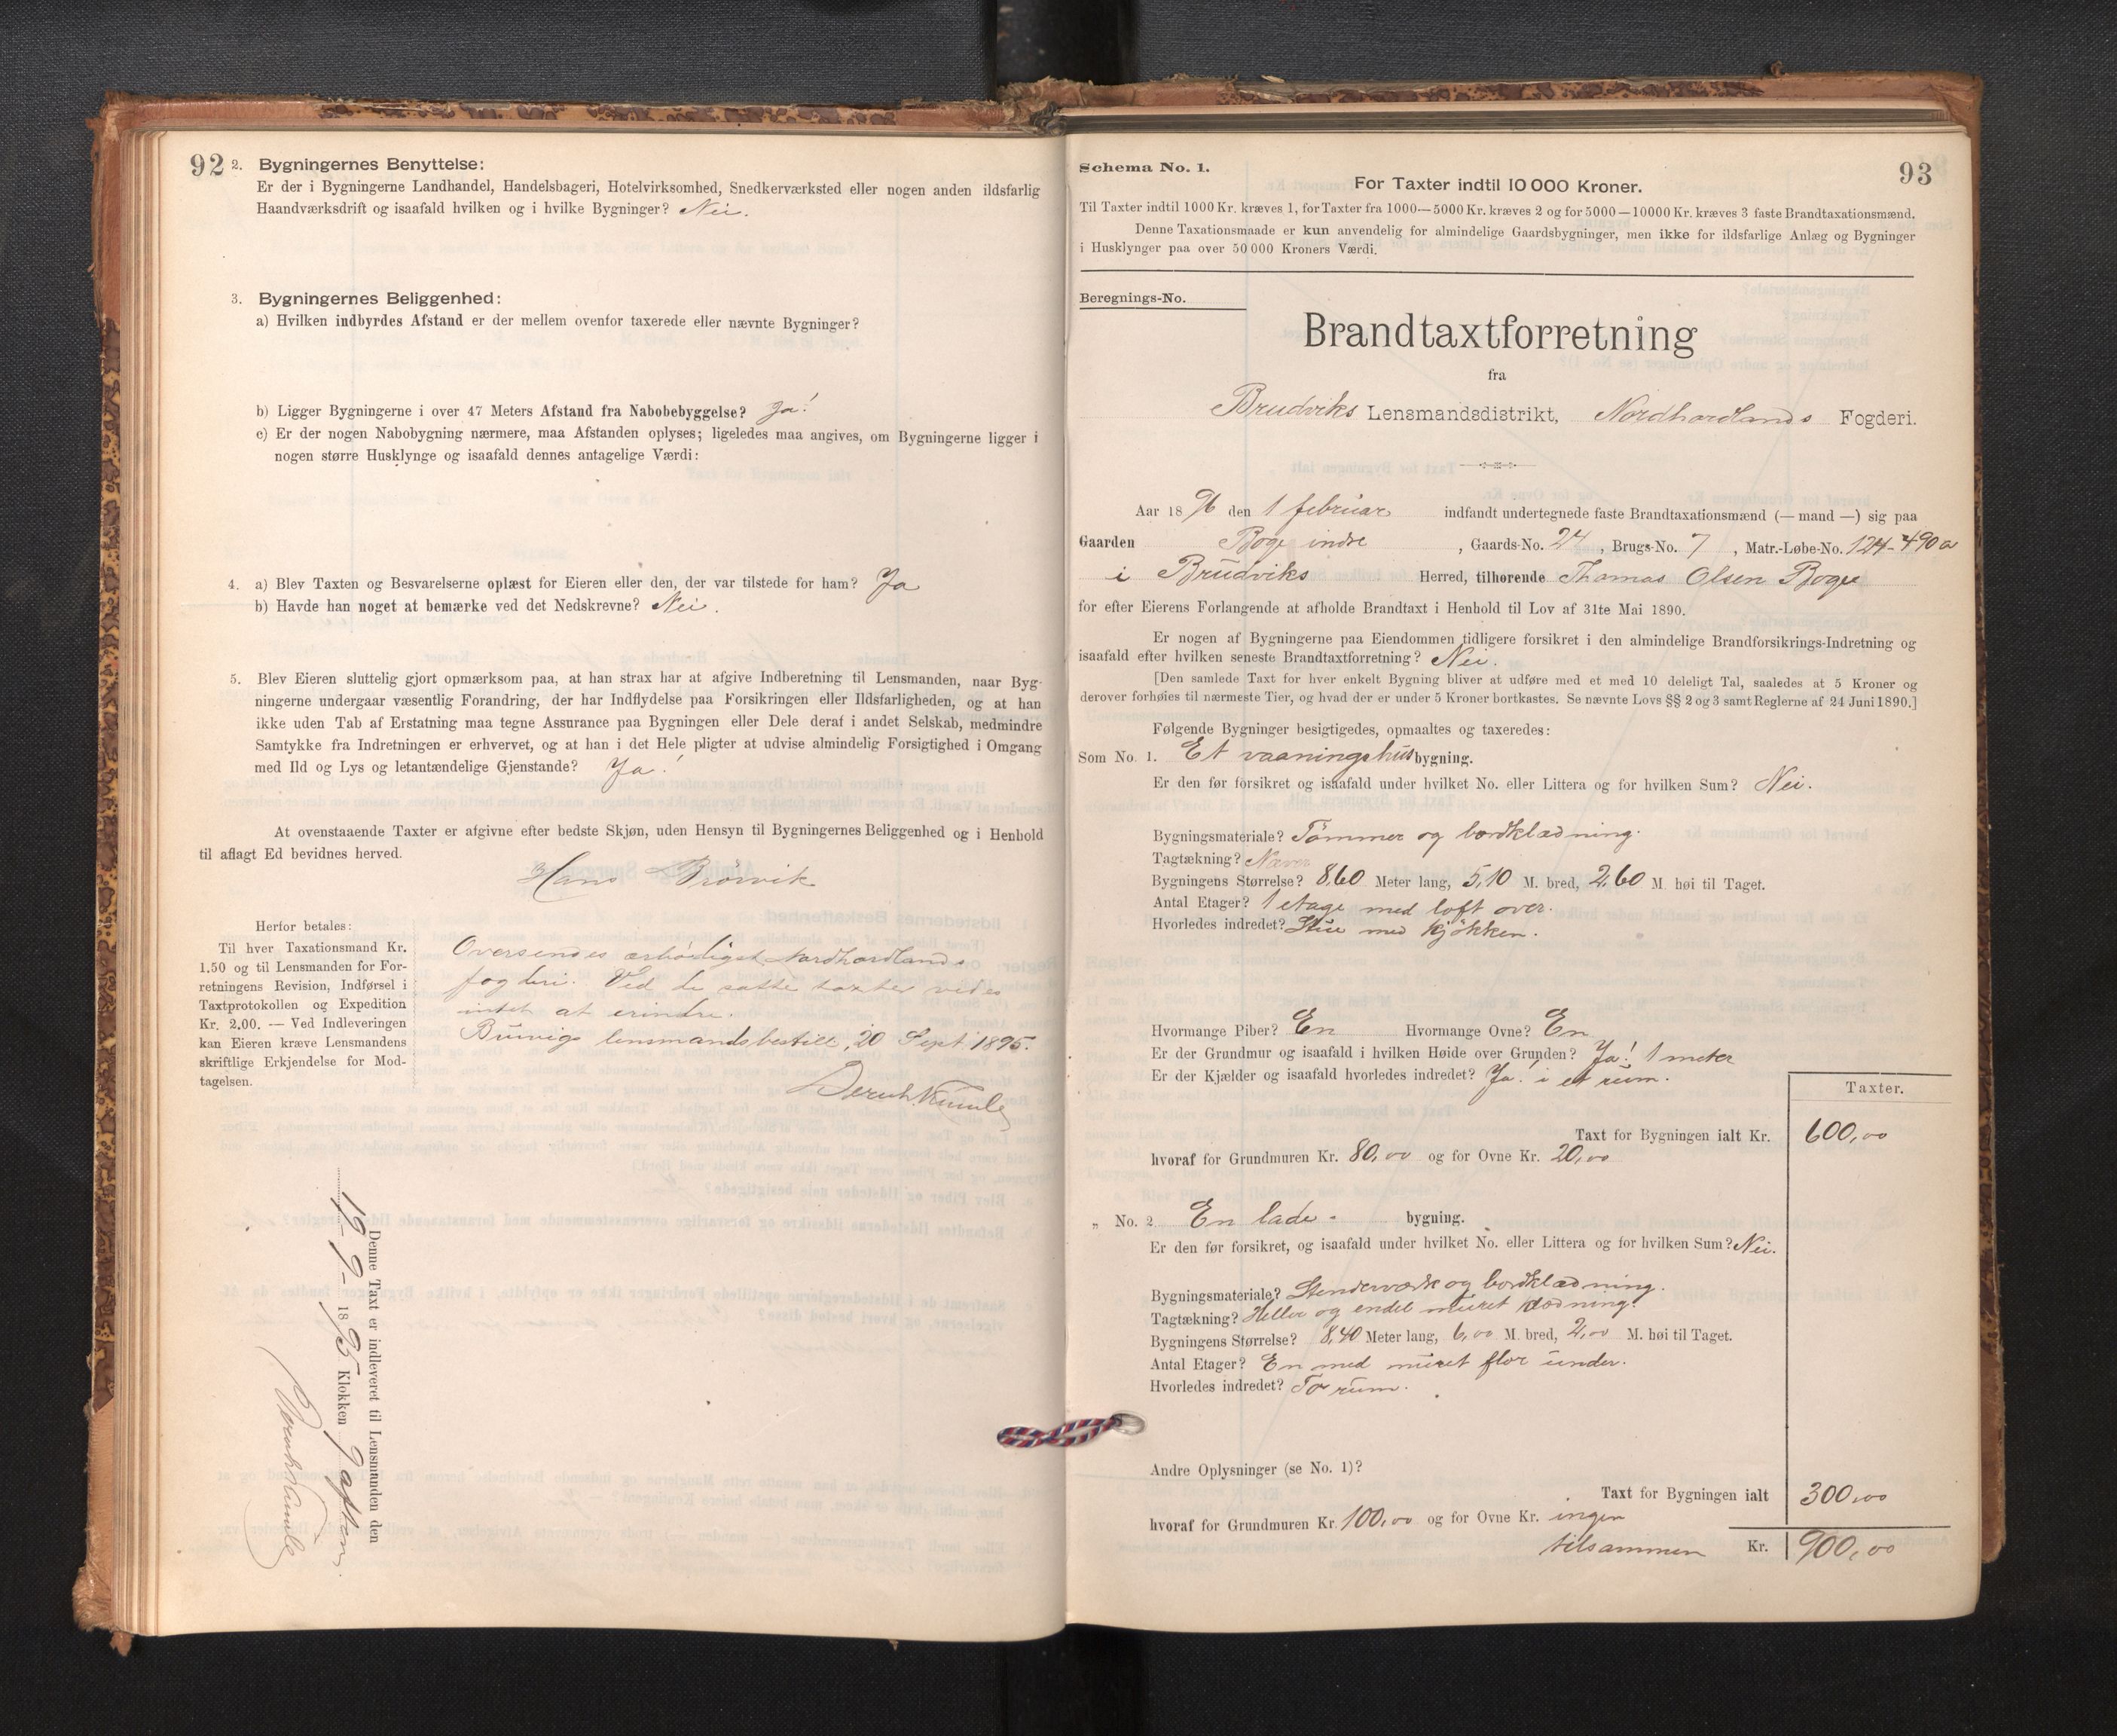 92
2. Bygningernes Benyttelse:
Er der i Bygningerne Landhandel, Handelsbageri, Hotelvirksomhed, Snedkerværksted eller nogen anden ildsfarlig
Haandværksdrift og isaafald hvilken og i hvilke Bygninger? Nei.
3. Bygningernes Beliggenhed:
a) Hvilken indbyrdes Afstand er der mellem ovenfor taxerede eller nævnte Bygninger?
b) Ligger Bygningerne i over 47 Meters Afstand fra Nabobebyggelse? Ja!
c) Er der nogen Nabobygning nærmere, maa Afstanden oplyses; ligeledes maa angives, om Bygningerne ligger i
nogen større Husklynge og isaafald dennes antagelige Værdi:
4. a) Blev Taxten og Besvarelserne oplæst for Eieren eller den, der var tilstede for ham? Ja
b) Havde han noget at bemærke ved det Nedskrevne? Nei.
5. Blev Eieren sluttelig gjort opmærksom paa, at han strax har at afgive Indberetning til Lensmanden, naar Byg-
ningerne undergaar væsentlig Forandring, der har Indflydelse paa Forsikringen eller Ildsfarligheden, og at han
ikke uden Tab af Erstatning maa tegne Assurance paa Bygningen eller Dele deraf i andet Selskab, medmindre
Samtykke fra Indretningen er erhvervet, og at han i det Hele pligter at udvise almindelig Forsigtighed i Omgang
med Ild og Lys og letantændelige Gjenstande? Ja!
At ovenstaaende Taxter er afgivne efter bedste Skjøn, uden Hensyn til Bygningernes Beliggenhed og i Henhold
til aflagt Ed bevidnes herved.
Hans Brørvik
Herfor betales:
Til hver Taxationsmand Kr.
1.50 og til Lensmanden for For-
retningens Revision, Indførsel i
Taxtprotokollen og Expedition
Kr. 2.00. — Ved Indleveringen
kan Eieren kræve Lensmandens
skriftlige Erkjendelse for Mod-
tagelsen.
Oversendes ærbødigst Nordhordlands
fogderi. Ved de satte taxter vides
intet at erindre.
Bruvigs lensmandsbestill, 20 Sept 1895.
Denne Taxt er indleveret til Lensmanden den
19-9- 1895 Klokken 9 aften
Schema No. 1.
93
For Taxter indtil 10 000 Kroner.
Til Taxter indtil 1000 Kr. kræves 1, for Taxter fra 1000—5000 Kr. kræves 2 og for 5000—10000 Kr. kræves 3 faste Brandtaxationsmænd.
Denne Taxationsmaade er kun anvendelig for almindelige Gaardsbygninger, men ikke for ildsfarlige Anlæg og Bygninger
i Husklynger paa over 50 000 Kroners Værdi.
Beregnings-No.
Brandtaxtforretning
fra
Brudviks Lensmandsdistrikt, Nordhordlands Fogderi.
Aar 1896 den 1 februar indfandt undertegnede faste Brandtaxationsmænd (— mand —) sig paa
Gaarden Boge indre, Gaards-No. 24, Brugs-No. 7, Matr.-Løbe-No. 124-490 a
i Brudviks Herred, tilhørende Thomas Olsen Boge
for efter Eierens Forlangende at afholde Brandtaxt i Henhold til Lov af 31te Mai 1890.
Er nogen af Bygningerne paa Eiendommen tidligere forsikret i den almindelige Brandforsikrings-Indretning og
isaafald efter hvilken seneste Brandtaxtforretning? Nei.
[Den samlede Taxt for hver enkelt Bygning bliver at udføre med et med 10 deleligt Tal, saaledes at 5 Kroner og
derover forhøies til nærmeste Tier, og hvad der er under 5 Kroner bortkastes. Se nævnte Lovs §§ 2 og 3 samt Reglerne af 24 Juni 1890.]
Følgende Bygninger besigtigedes, opmaaltes og taxeredes:
Som No. 1. Et vaaningshus bygning.
Er den før forsikret og isaafald under hvilket No. eller Littera og for hvilken Sum? Nei.
Bygningsmateriale? Tømmer og bordklædning.
Tagtækning? Næver
Bygningens Størrelse? 8,60 Meter lang, 5,10 M. bred, 2,60 M. høi til Taget.
Antal Etager? 1 etage med loft over.
Hvorledes indredet? Stue med kjøkken.
Hvormange Piber? En Hvormange Ovne? En
Er der Grundmur og isaafald i hvilken Høide over Grunden? Ja! 1 meter
Er der Kjælder og isaafald hvorledes indredet? Ja. i et rum.
Taxter.
Taxt for Bygningen ialt Kr. 600,00
hvoraf for Grundmuren Kr. 80,00 og for Ovne Kr. 20,00
„ No. 2 En lade- bygning.
Er den før forsikret, og isaafald under hvilket No. eller Littera og for hvilken Sum? Nei.
Bygningsmateriale? Stenderværk og bordklædning.
Tagtækning? Heller og endel muret klædning.
Bygningens Størrelse? 8,40 Meter lang, 6,00 M. bred, 2,00 M. høi til Taget.
Antal Etager? En med muret flor under.
Hvorledes indredet? To rum.
Andre Oplysninger (se No. 1)?
Taxt for Bygningen ialt 300,00
hvoraf for Grundmuren Kr. 100,00 og for Ovne Kr. ingen
tilsammen Kr. 900,00